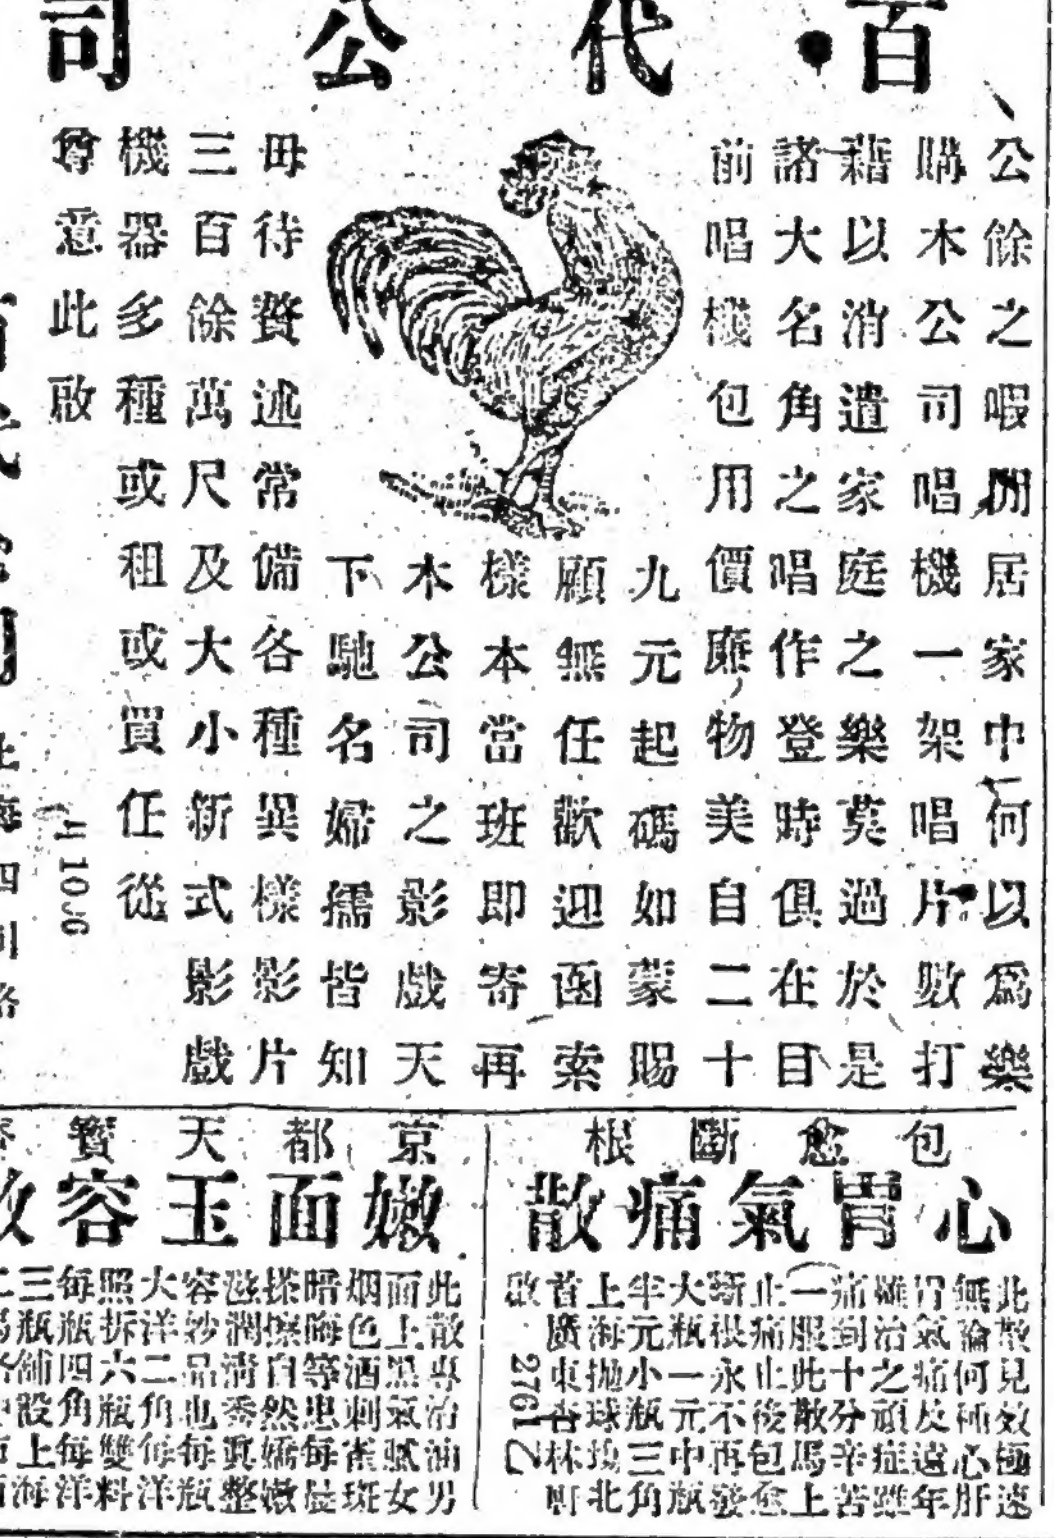 百代公司
公餘之暇閒居家中何以爲樂
購本公司唱機一架唱片數打
藉以消遣家庭之樂莫過於是
諸大名角之唱作登時俱在目
前唱機包用價廉物美自二十
九元起碼如蒙賜
顧無任歡迎函索
樣本當班即寄再
本公司之影戲天
下馳名婦孺皆知
毋待贅述常備各種異樣影片
三百餘萬尺及大小新式影戲
機器多種或租或買任從
尊意此啟
包愈斷根
心胃氣痛散
此散見效極速
無論何種心肝
胃氣痛及遠年
難治之頑症雖
痛到十分辛苦
一服此散馬上
止痛止後包愈
斷根永不再發
大瓶一元中瓶
半元小瓶三角
上海拋球塲北
首廣東杏林軒
啟
2761乙
京都天寶
嫩面玉容散
此散專治油男
面上黑氣膩女
烟色酒刺雀斑
暗晦等患每晨
搽擦自然嬌嫩
滋潤清秀眞整
容妙品也每瓶
大洋二角每洋
照拆六瓶雙料
每瓶四角每洋
三瓶舖設上海